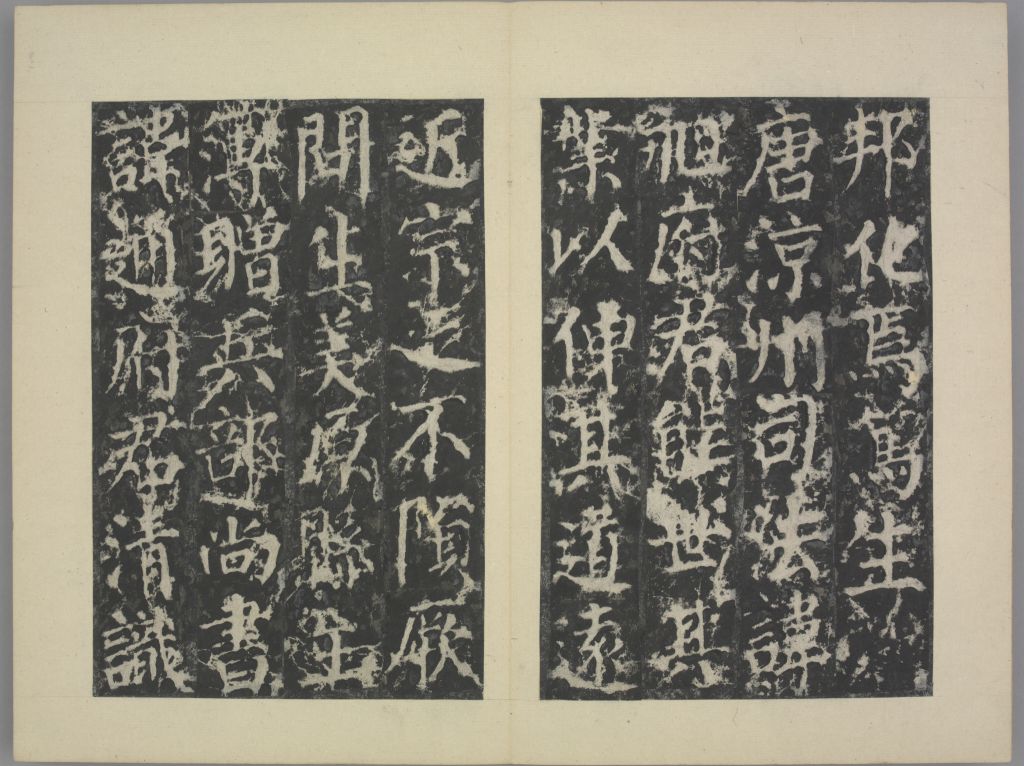 邦化焉篤生
唐涼州司法諱
昶府君能世其
業以伸其道遠
近宗之不隕厥
問生美原縣主
簿贈兵部尚書
諱通府君清識